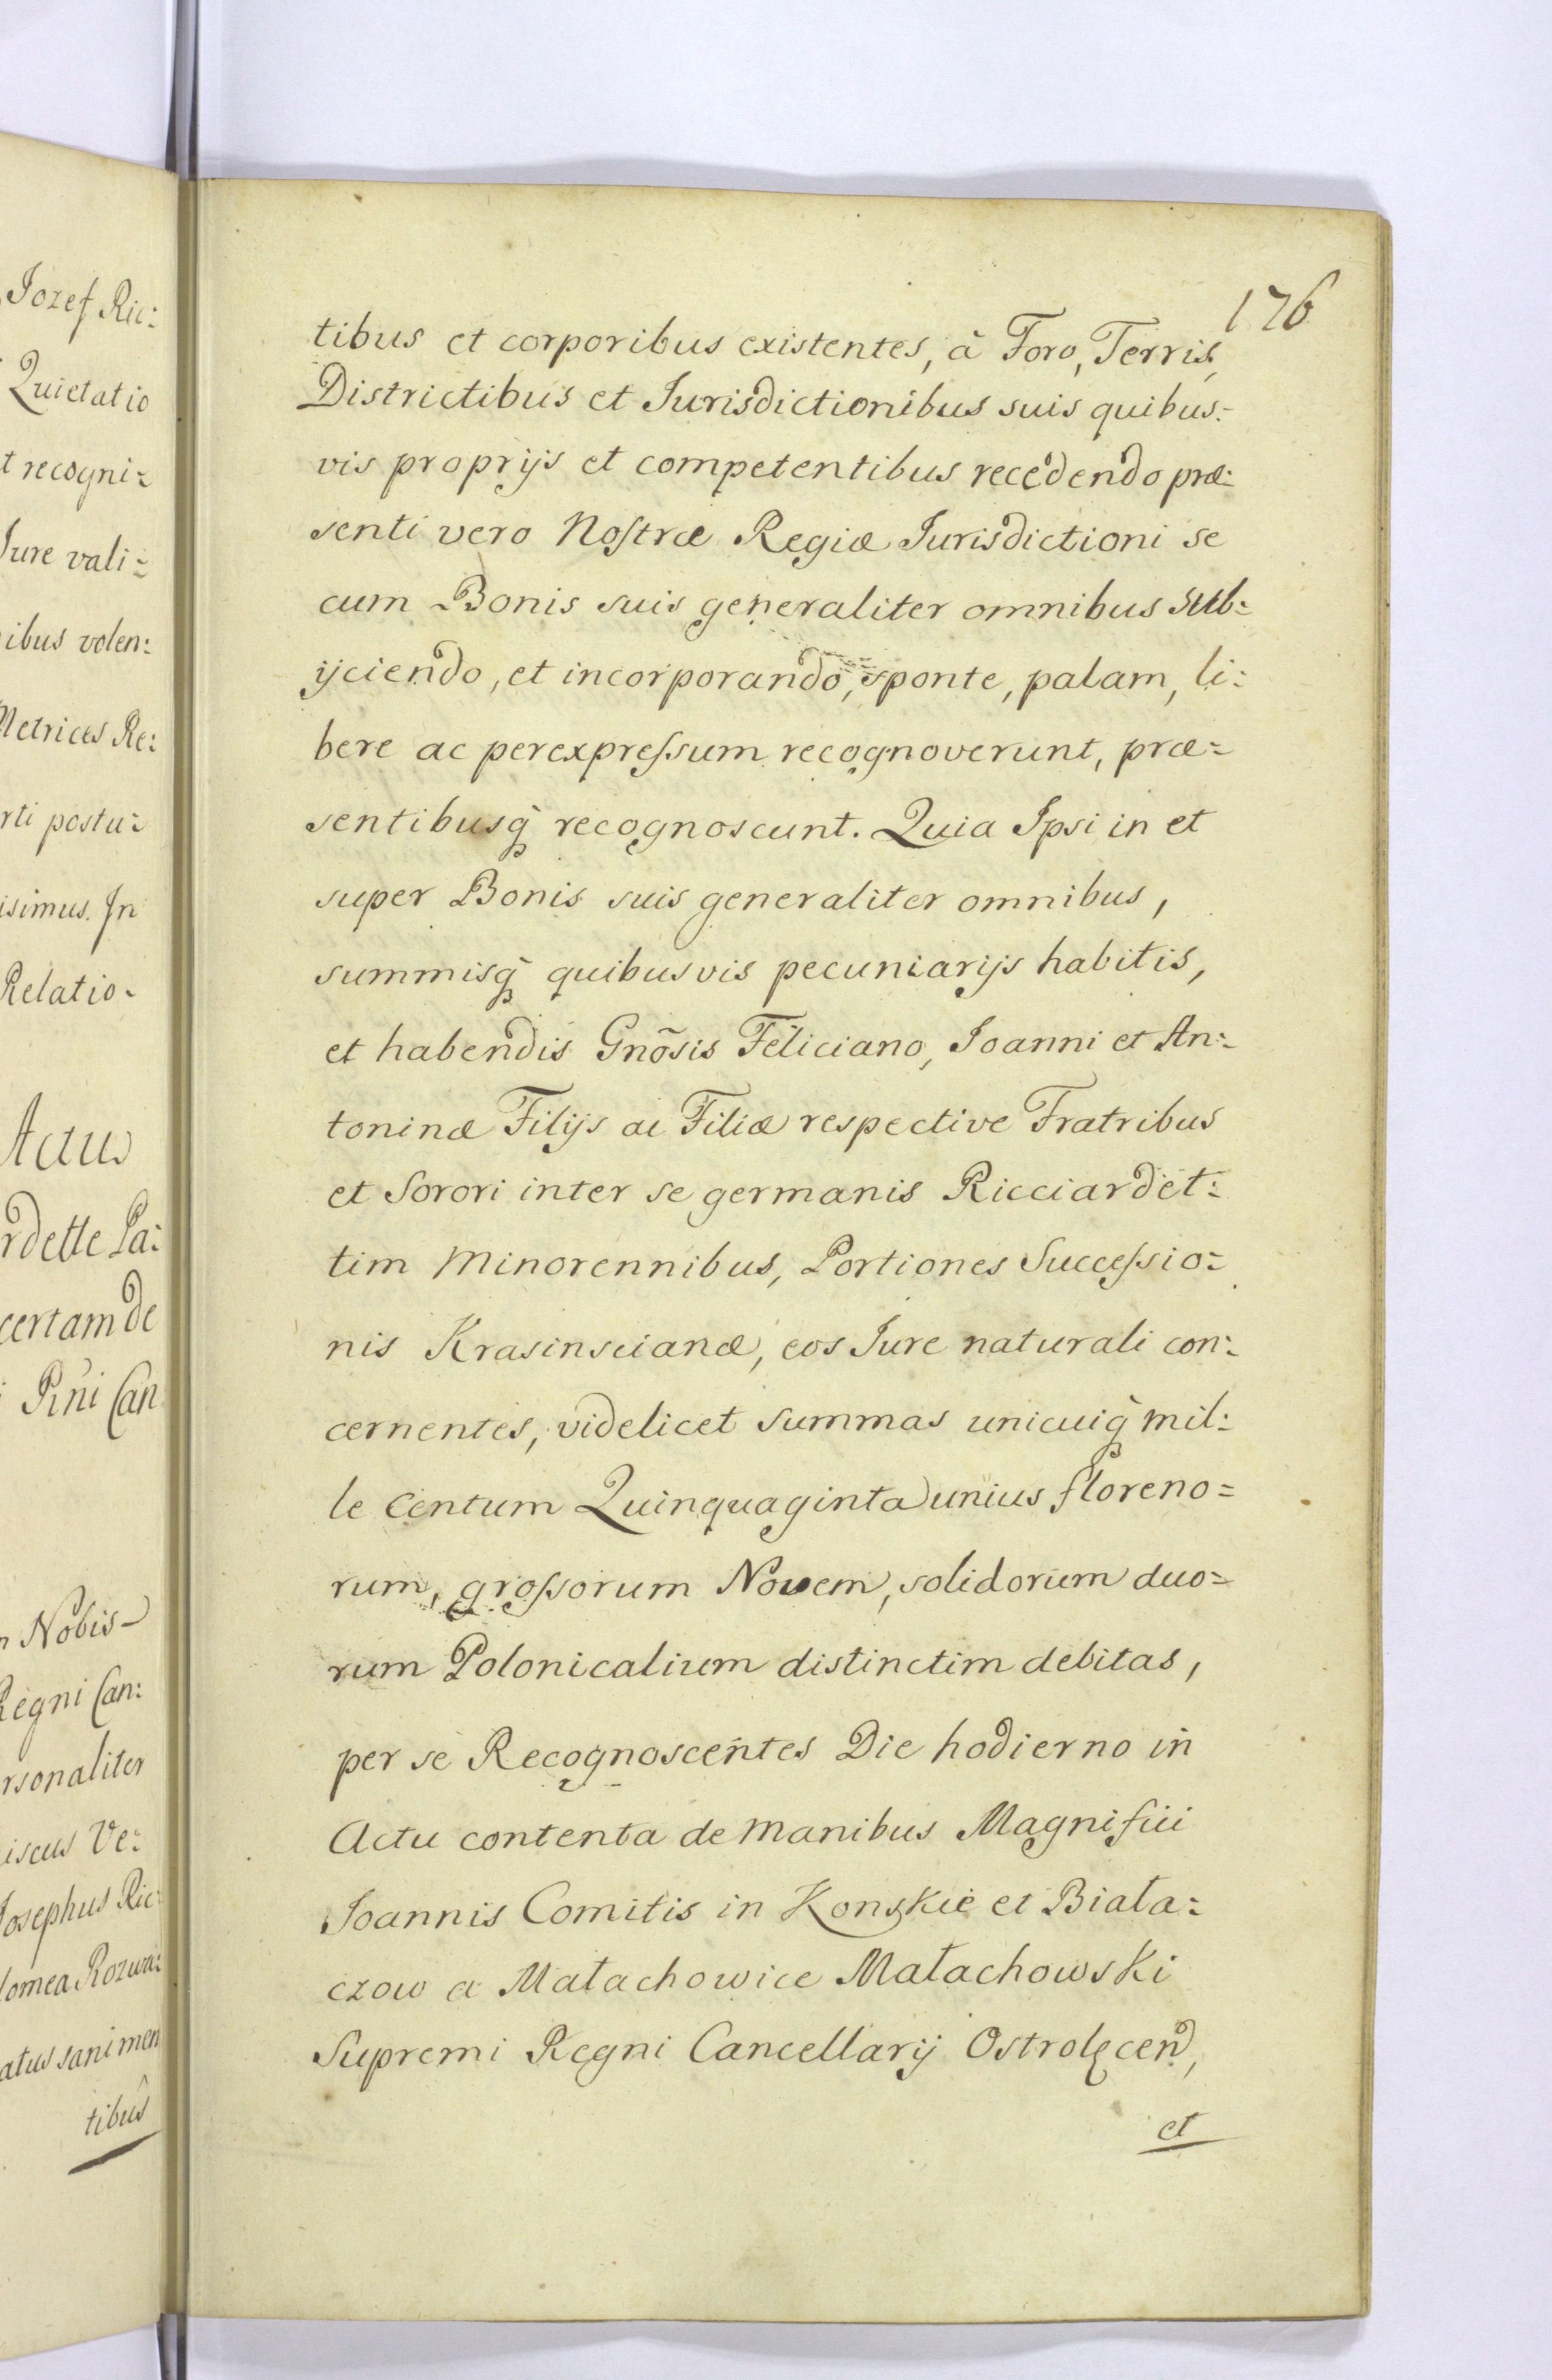 Jozef Ric:
Quietatio
t recogni=
Jure vali=
ibus volen:
Metrices Re:
rti postu=
isimus. In
Relatio-
Actus
rdette Pa:
certam de
Rñi Can
Nobis
Regni Can:
rsonaliter
iscus Ve:
Josephus Ric:
lomea Rozwa:
atus sani men
tibus
176
tibus et corporibus existentes, à Foro, Terris,
Districtibus et Jurisdictionibus suis quibus=
vis proprijs et competentibus recedendo præ=
senti vero Nostræ Regiæ Jurisdictioni se
cum Bonis suis generaliter omnibus sub=
ijciendo, et incorporando, sponte, palam, li=
bere ac perexpressum recognoverunt, præ=
sentibusq̃ recognoscunt. Quia Ipsi in et
super Bonis suis generaliter omnibus,
summisq̃ quibusvis pecuniarijs habitis,
et habendis Gnõsis Feliciano, Joanni et An=
toninæ Filijs ac Filiæ respective Fratribus
et Sorori inter se germanis Ricciardet=
tim Minorennibus, Portiones Successio=
nis Krasinscianæ, eos Jure naturali con=
cernentes, videlicet summas unicuiq̃ mil=
le Centum Quinquaginta unius floreno=
rum, grossorum Novem, solidorum duo=
rum Polonicalium distinctim debitas,
per se Recognoscentes Die hodierno in
Actu contenta de manibus Magnifici
Joannis Comitis in Konskie et Biała=
czow a Małachowice Małachowski
Supremi Regni Cancellarij Ostrolęcen,
et